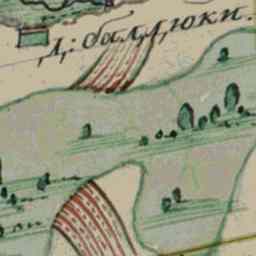 Д: балдюки.